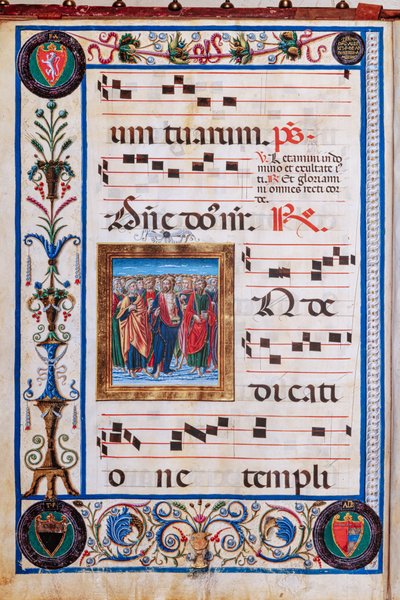 um tuarum. ps.
℣. Letamini in do
mino et exultate i
ti. ℞. Et gloriami
ni omnes recti cor
de.
Añe dom. ℞.
N de
dicati
o ne templi